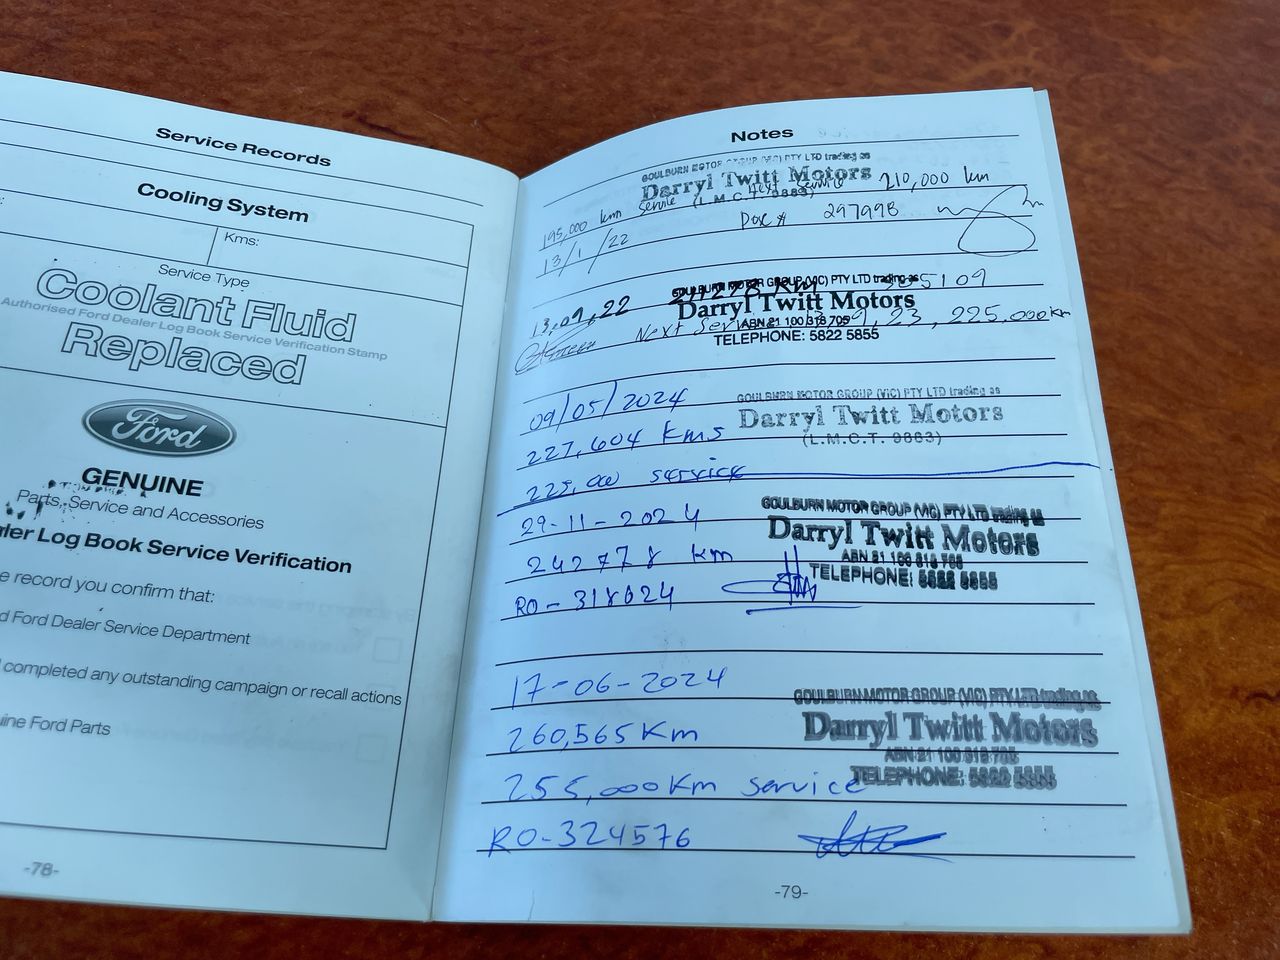 Service Records
Cooling System
Kms:
Service Type
Coolant Fluid
Authorised Ford Dealer Log Book Service Verification Stamp
Replaced
Ford
GENUINE
Parts, Service and Accessories
ler Log Book Service Verification
e record you confirm that:
d Ford Dealer Service Department
completed any outstanding campaign or recall actions
ine Ford Parts
-78-
Notes
GOULBURN MOTOR GROUP (VIC) PTY LTD trading as
Darryl Twitt Motors
(L.M.C.T. 9883)
195,000 km Service Next Service 210,000 km
13/1/22 Doc # 297998
GOULBURN MOTOR GROUP (VIC) PTY LTD trading as
Darryl Twitt Motors
ABN 21 100 318 705
TELEPHONE: 5822 5855
22 5109
Next 23, 225.000km
09/05/2024
GOULBURN MOTOR GROUP (VIC) PTY LTD trading as
Darryl Twitt Motors
(L.M.C.T. 9883)
227,604 kms
225,000 service
29-11-2024
GOULBURN MOTOR GROUP (VIC) PTY LTD trading as
Darryl Twitt Motors
ABN 21 100 318 705
TELEPHONE: 5822 5855
242778 km
RO-318024
17-06-2024
GOULBURN MOTOR GROUP (VIC) PTY LTD trading as
Darryl Twitt Motors
ABN 21 100 318 705
TELEPHONE: 5822 5855
260,565 Km
255,000Km service
RO-324576
-79-